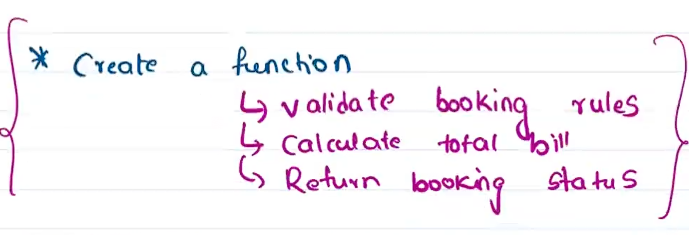 * Create a function
↳ validate booking rules
↳ Calculate total bill
↳ Return booking status